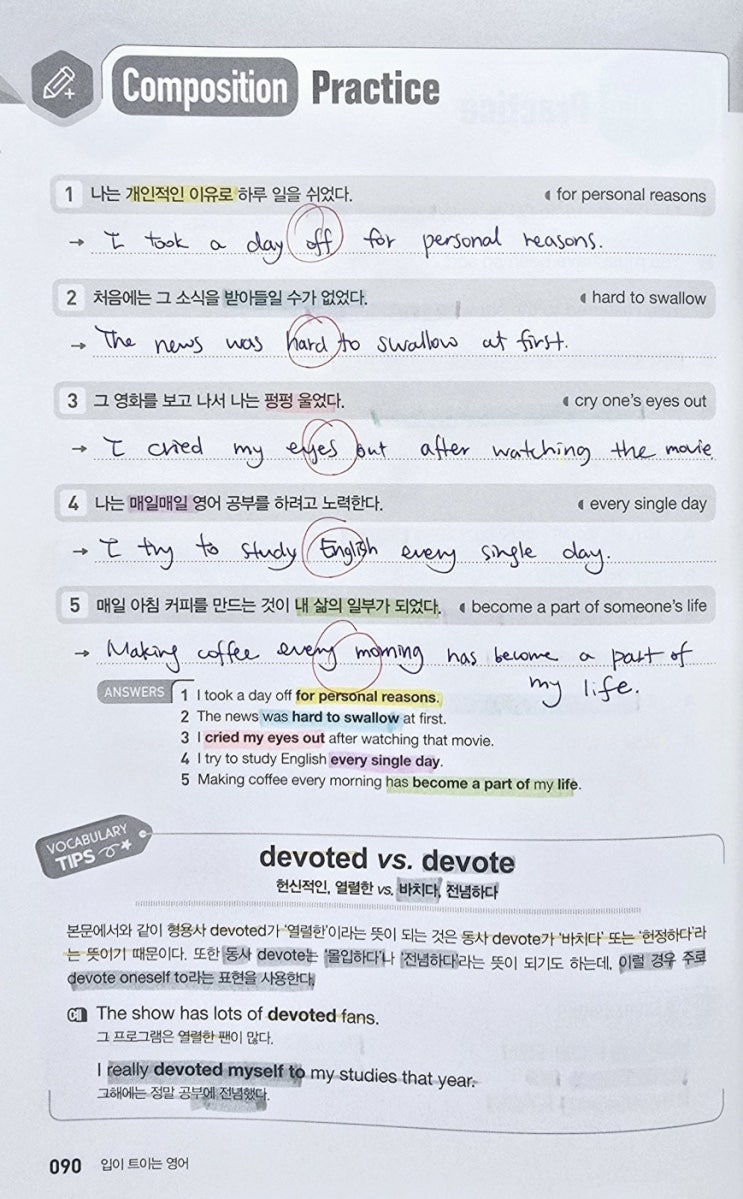 Composition Practice
1 나는 개인적인 이유로 하루 일을 쉬었다. for personal reasons
→ I took a day off for personal reasons.
2 처음에는 그 소식을 받아들일 수가 없었다. hard to swallow
→ The news was hard to swallow at first.
3 그 영화를 보고 나서 나는 펑펑 울었다. cry one's eyes out
→ I cried my eyes out after watching the movie.
4 나는 매일매일 영어 공부를 하려고 노력한다. every single day
→ I try to study English every single day.
5 매일 아침 커피를 만드는 것이 내 삶의 일부가 되었다. become a part of someone's life
→ Making coffee every morning has become a part of
my life.
ANSWERS 1 I took a day off for personal reasons.
2 The news was hard to swallow at first.
3 I cried my eyes out after watching that movie.
4 I try to study English every single day.
5 Making coffee every morning has become a part of my life.
VOCABULARY
TIPS
devoted vs. devote
헌신적인, 열렬한 vs. 바치다, 전념하다
본문에서와 같이 형용사 devoted가 '열렬한'이라는 뜻이 되는 것은 동사 devote가 '바치다' 또는 '헌정하다'라
는 뜻이기 때문이다. 또한 동사 devote는 '몰입하다'나 '전념하다'라는 뜻이 되기도 하는데, 이럴 경우 주로
devote oneself to라는 표현을 사용한다.
예 The show has lots of devoted fans.
그 프로그램은 열렬한 팬이 많다.
I really devoted myself to my studies that year.
그해에는 정말 공부에 전념했다.
090 입이 트이는 영어